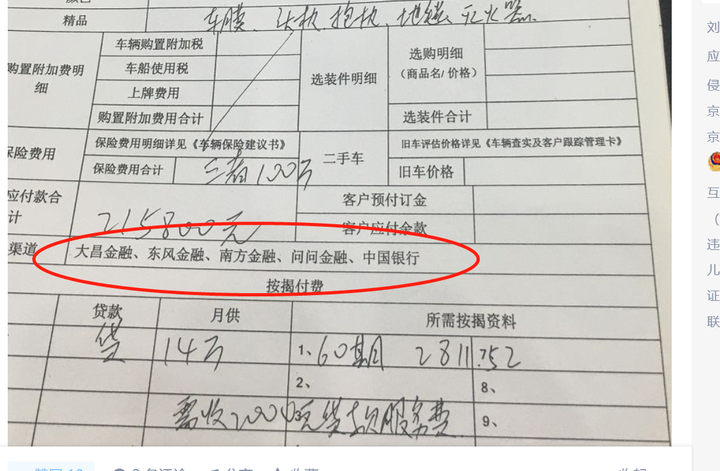 精品 车膜、头枕、抱枕、地毯、灭火器.
购置附加费明细 车辆购置附加税 选装件明细 选购明细（商品名/价格）
车船使用税
上牌费用
购置附加费合计 选装件合计
保险费用 保险费用明细详见《车辆保险建议书》 二手车 旧车评估价格详见《车辆查实及客户跟踪管理卡》
保险费用合计 三者100万 旧车价格
应付款合计 215800元 客户预付订金
客户应付余款
渠道 大昌金融、东风金融、南方金融、问问金融、中国银行
按揭付费
贷款 月供 所需按揭资料
贷 14万 1、60期 2811.52
2、 8、
需收2000元贷款服务费 9、
刘
应
侵
京
京
互
（
违
儿
证
联